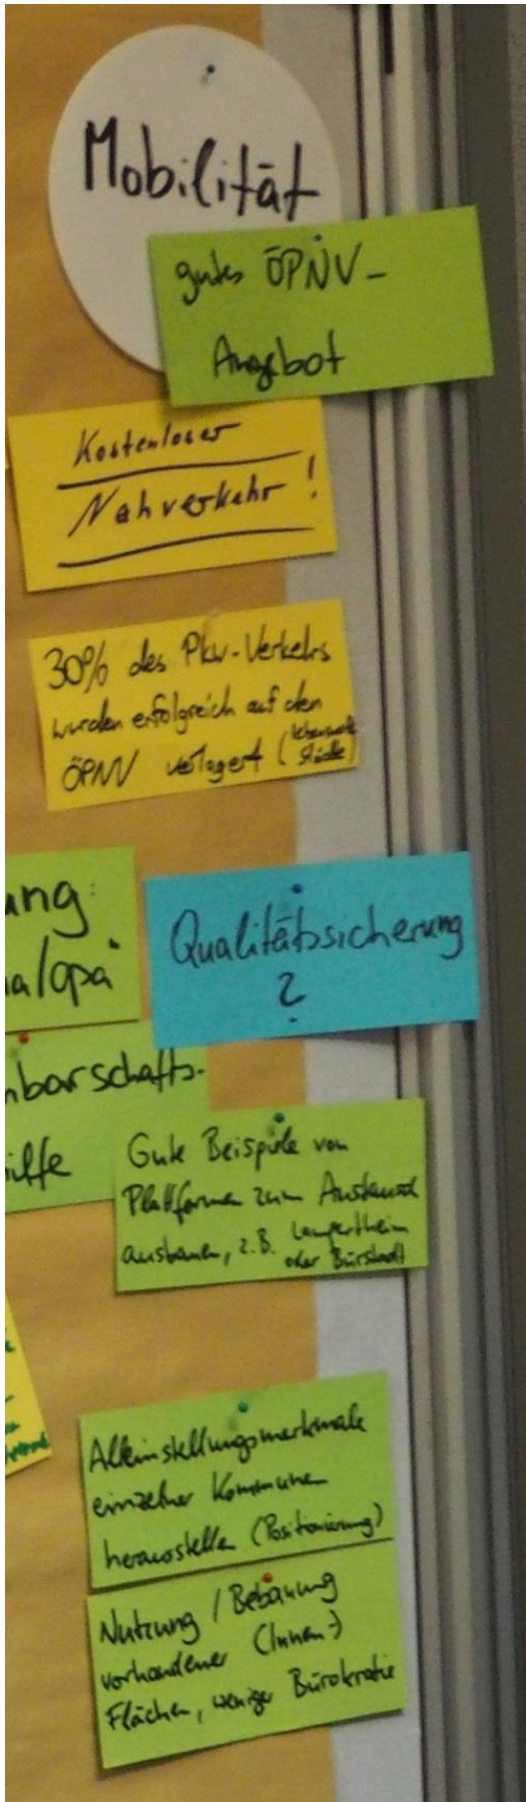 Mobilität
gutes ÖPNV-
Angebot
Kostenloser
Nahverkehr!
30% des Pkw-Verkehrs
wurden erfolgreich auf den
ÖPNV verlagert (lebenswerte
Städte)
ung:
a/opa"
Qualitätssicherung
?
nbarschafts-
ilfe
Gute Beispiele von
Plattformen zum Austausch
ausbauen, z.B. Lampertheim
oder Bürstadt
Alleinstellungsmerkmale
einzelner Kommunen
herausstellen (Positionierung)
Nutzung / Bebauung
vorhandener (Innen-)
Flächen, weniger Bürokratie